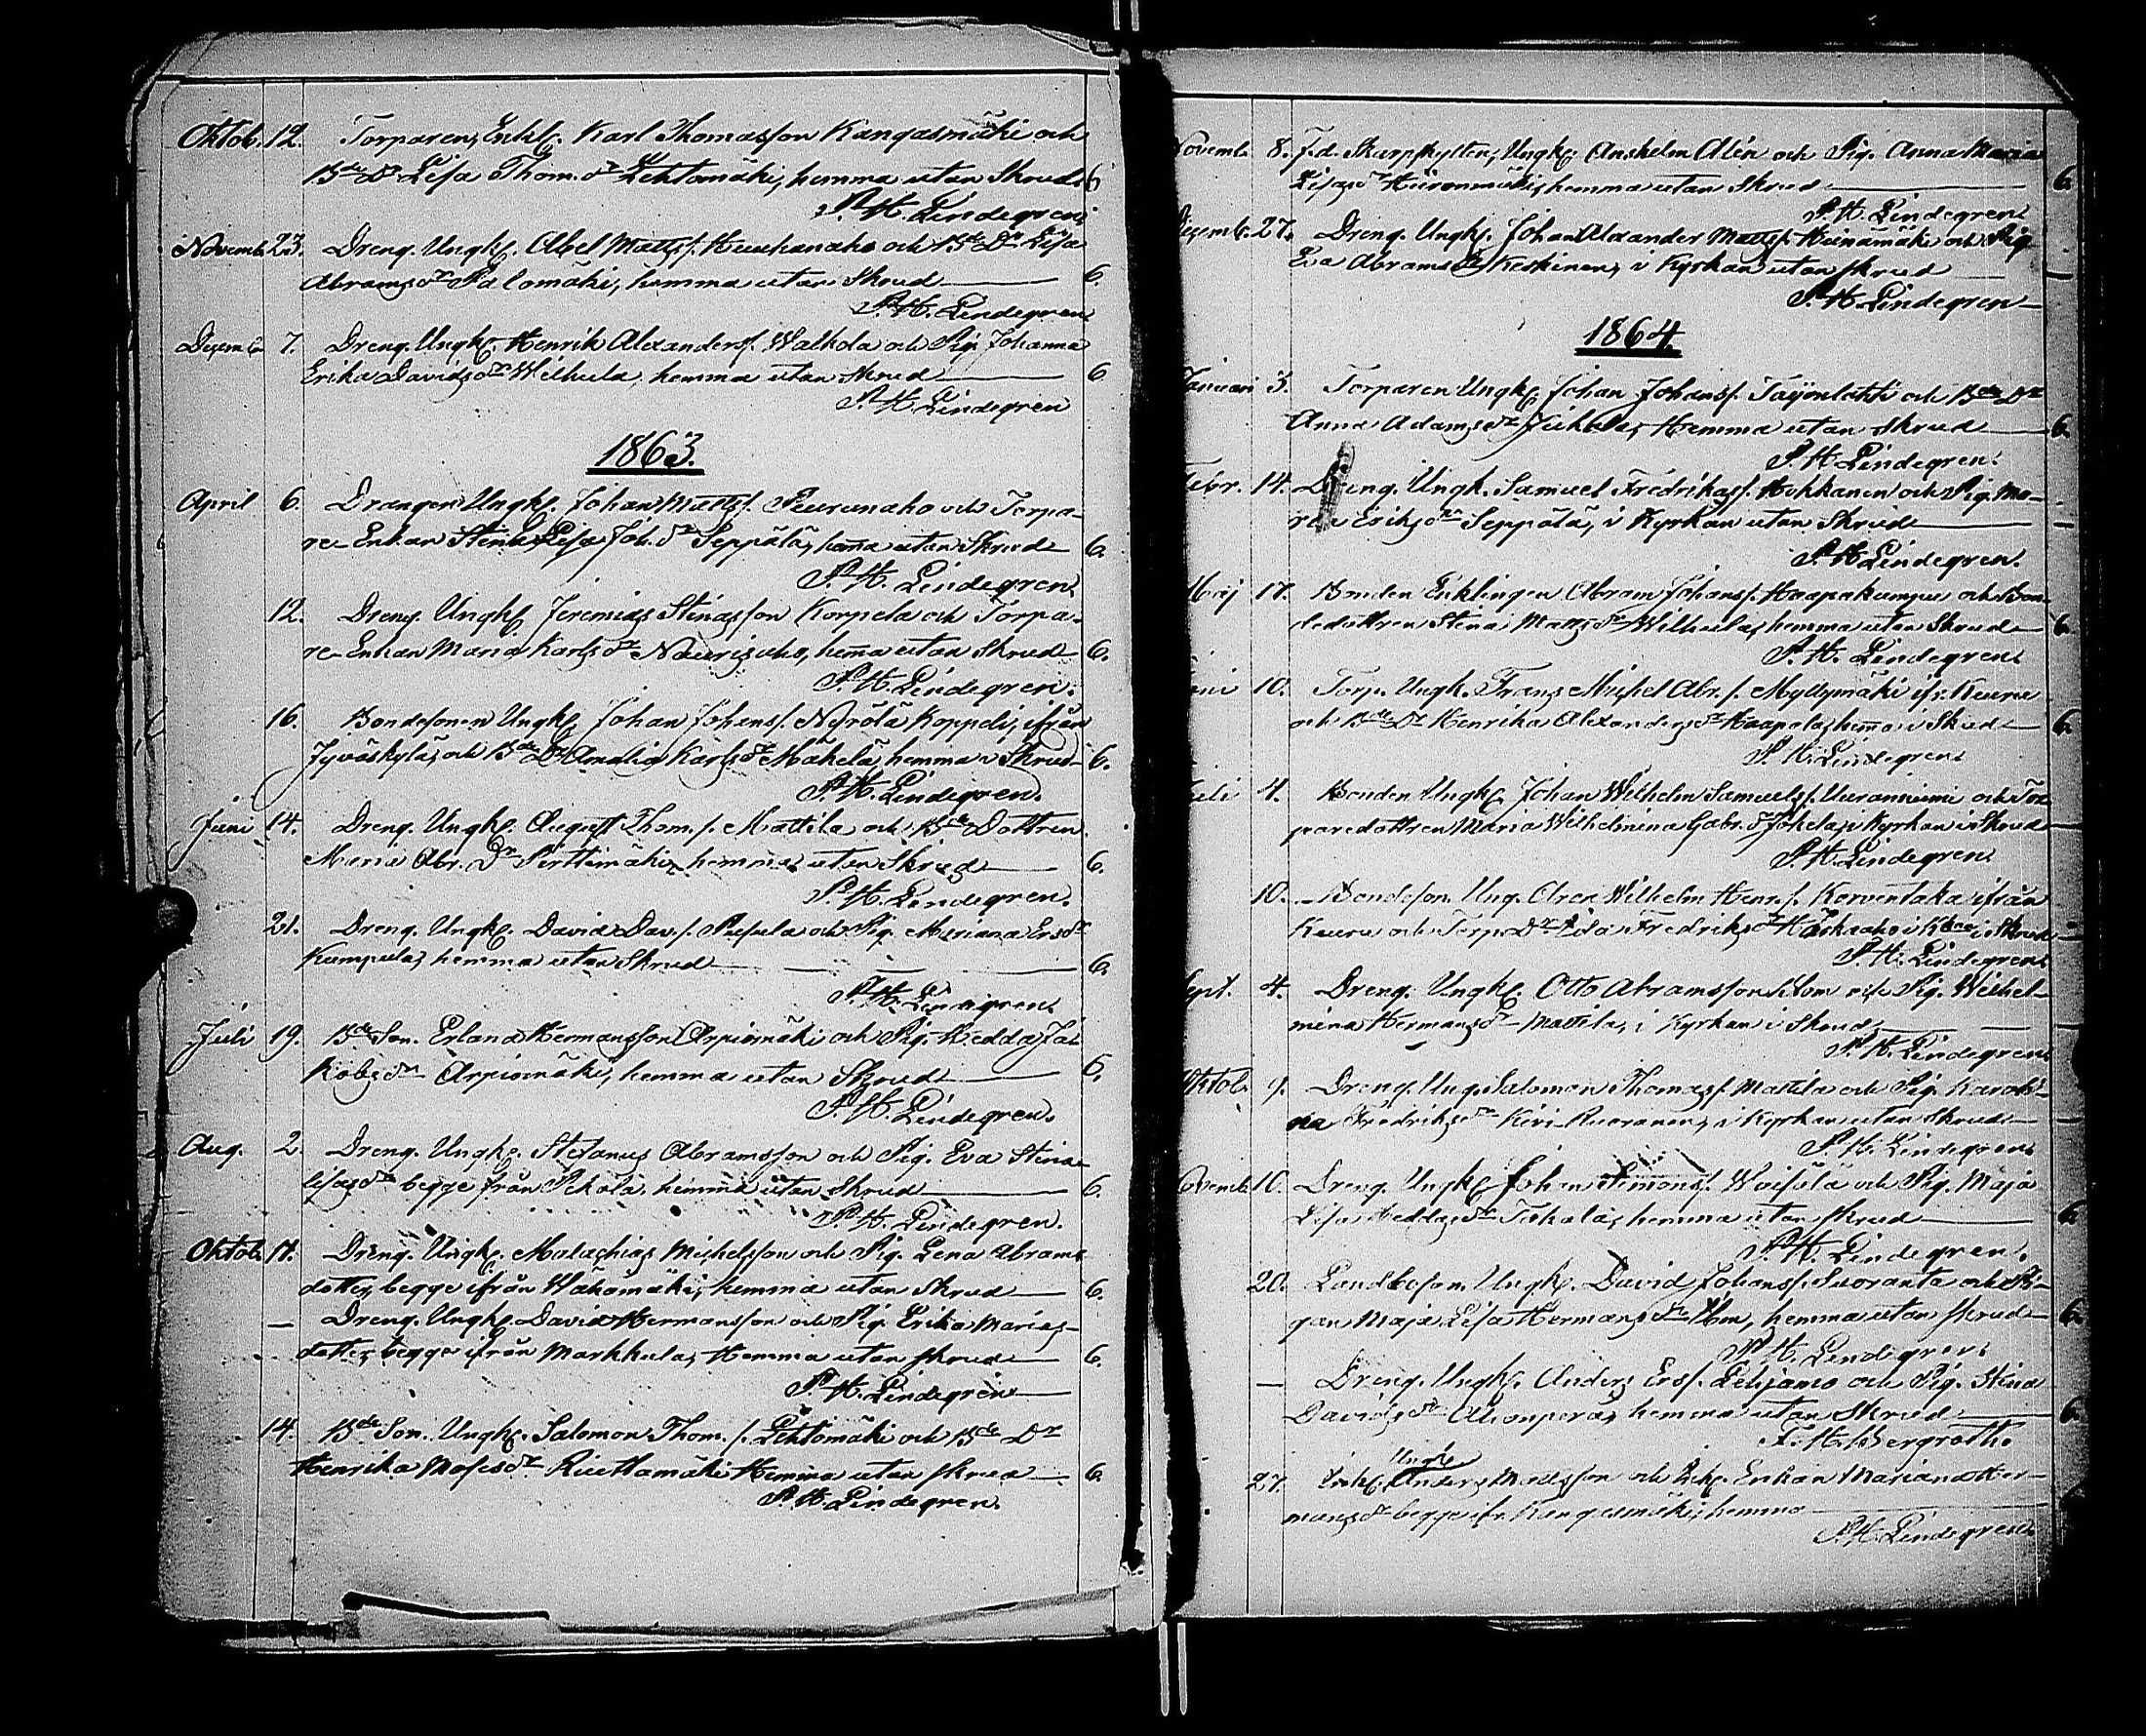 Oktob. 12. Torparen, Enkl. Karl Thomasson Kangasmäki och
Bde Dr Lisa Thom. dr Lehtomäki, hemma utan Skrud 6
P. H. Lindegren.
Novemb. 23. Dreng. Ungk. Abel Matts s. Huuhanaho och Bde Dr Lisa
Abramsdr Salomäki, hemma utan Skrud 6.
P. H. Lindegren
Dezemb. 7. Dreng. Ungk. Henrik Alexanders s. Walkola och Pig. Johanna
Erika Davidsdr Wilhula, hemma utan Skrud 6
P. H. Lindegren
1863.
April 6. Drängen Ungk. Johan Matts s. Peuranaho och Torpa-
re-Enkan Stina Lisa Joh. dr Seppälä, hema utan Skrud 6.
P. H. Lindegren.
12. Dreng. Ungk. Jeremias Stinasson Korpela och Torpa-
re-Enkan Maria Karlsdr, hema utan Skrud 6.
P. H. Lindegren.
16. Bondesonen Ungk. Johan Johans s. Nyrölä Koppeli, ifrån
Jyväskylä, och Bde Dr Amalia Karlsdr Mäkelä hemma i Skrud 6.
P. H. Lindegren.
Juni 14. Dreng. Ungk. August Thom. s. Mattila och Bde Dottren
Maria Abr. Dr Perttimäki, hemma utan Skrud 6.
P. H. Lindegren.
21. Dreng. Ungk. David Dav. s. och Pig. Mariana Ersdr
Kumpula, hemma utan Skrud 6.
P. H. Lindegren.
Juli 19. Bde Son. Erland Hermansson Arpiomäki och Pig. Hedda Ja-
kobsdr Arpiomäki, hemma utan Skrud 6.
P. H. Lindegren.
Aug. 2. Dreng. Ungk. Stefanus Abramsson och Pig. Eva Stina
Lisasdr begge från Pekola, hemma utan Skrud 6.
P. H. Lindegren.
Oktob. 11. Dreng. Ungk. Malachias Michelsson och Pig. Lena Abrams
dotter, begge ifrån Wähämäki, hemma utan Skrud 6.
— Dreng. Ungk. David Hermansson och Pig. Erika Marias-
dotter, begge ifrån Markkula, Hemma utan skrud 6.
P. H. Lindegren
14. Bde Son. Ungk. Salomon Thom. s. Lehtomäki och Bde Dr
Henrika Mosisdr Riuttamäki Hemma utan skrud 6.
P. H. Lindegren.
Novemb. 8. F.d. Skarpskytten, Ungk. Anshelm Alén och Pig. Anna Maria
Lisasdr Hiironmäki, hemma utan Skrud 6.
P. H. Lindegren.
Dezemb. 27. Dreng. Ungk. Johan Alexander Matts s. Heinämäki och Pig
Eva Abramsdr Keskinen, i Kyrkan utan skrud —
P. H. Lindegren
1864.
Januari 3. Torparen Ungk. Johan Johans s. Täyönlahti och Bde Dr
Anna Adamsdr Jukola, Hemma utan Skrud 6.
P. H. Lindegren.
Febr. 14. Dreng. Ungk. Samuel Fredriks s. Hokkanen och Pig. Ma-
ria Eriksdr Seppälä, i Kyrkan utan Skrud —
P. H. Lindegren.
Maij 17. Bonden Enklingen Abram Johans s. Haapakumpu och Bon-
dedottren Stina Mattsdr Wilhula, hemma utan Skrud 6.
P. H. Lindegren.
Juni 10. Torp. Ungk. Frans Michel Abr. s. Myllymäki ifr. Keuru
och Bde Dr Henrika Alexandersdr Haapala, hema i Skrud 6.
P. H. Lindegren
Juli 4. Bonden Ungk. Johan Wilhelm Samuels s. Uuranniemi och Tor-
paredottren Maria Wilhelmina Gabr. dr Jokela, i Kyrkan i Skrud —
P. H. Lindegren.
10. Bondeson. Ung. Wilhelm Henr. s. Korventaka ifrån
Keuru och Torp. Dr Fredriksdr i Skrud —
P. H. Lindegren.
Sept. 4. Dreng. Ungk. Otto Abramsson och Pig. Wilhel-
mina Hermansdr Mattila, i Kyrkan i Skrud —
P. H. Lindegren.
Oktob. 9. Dreng. Ung. Salomon Thomas s. Mattila och Pig. Karoli-
na Fredriksdr Kivi-Ruoranen, i Kyrkan utan Skrud —
P. H. Lindegren.
Novemb. 10. Dreng. Ungk. Johan Simons s. och Pig. Maja
Lisa Heddasdr Takala, hemma utan skrud 6.
P. H. Lindegren.
20. Landboson. Ungk. David Johans s. Suoranta och Pi-
gan Maja Lisa Hermansdr, hemma utan skrud 6.
P. H. Lindegren.
— Dreng. Ungk. Anders Ers s. Lehjamo och Pig. Stina
Davidsdr Ahonperä, hemma utan Skrud 6.
F. H. Bergroth.
Ungk.
27. Enkl. Anders Mattsson och Enkan Mariana Her-
mansdr begge ifr. Kangasmäki, hemma
P. H. Lindegren.